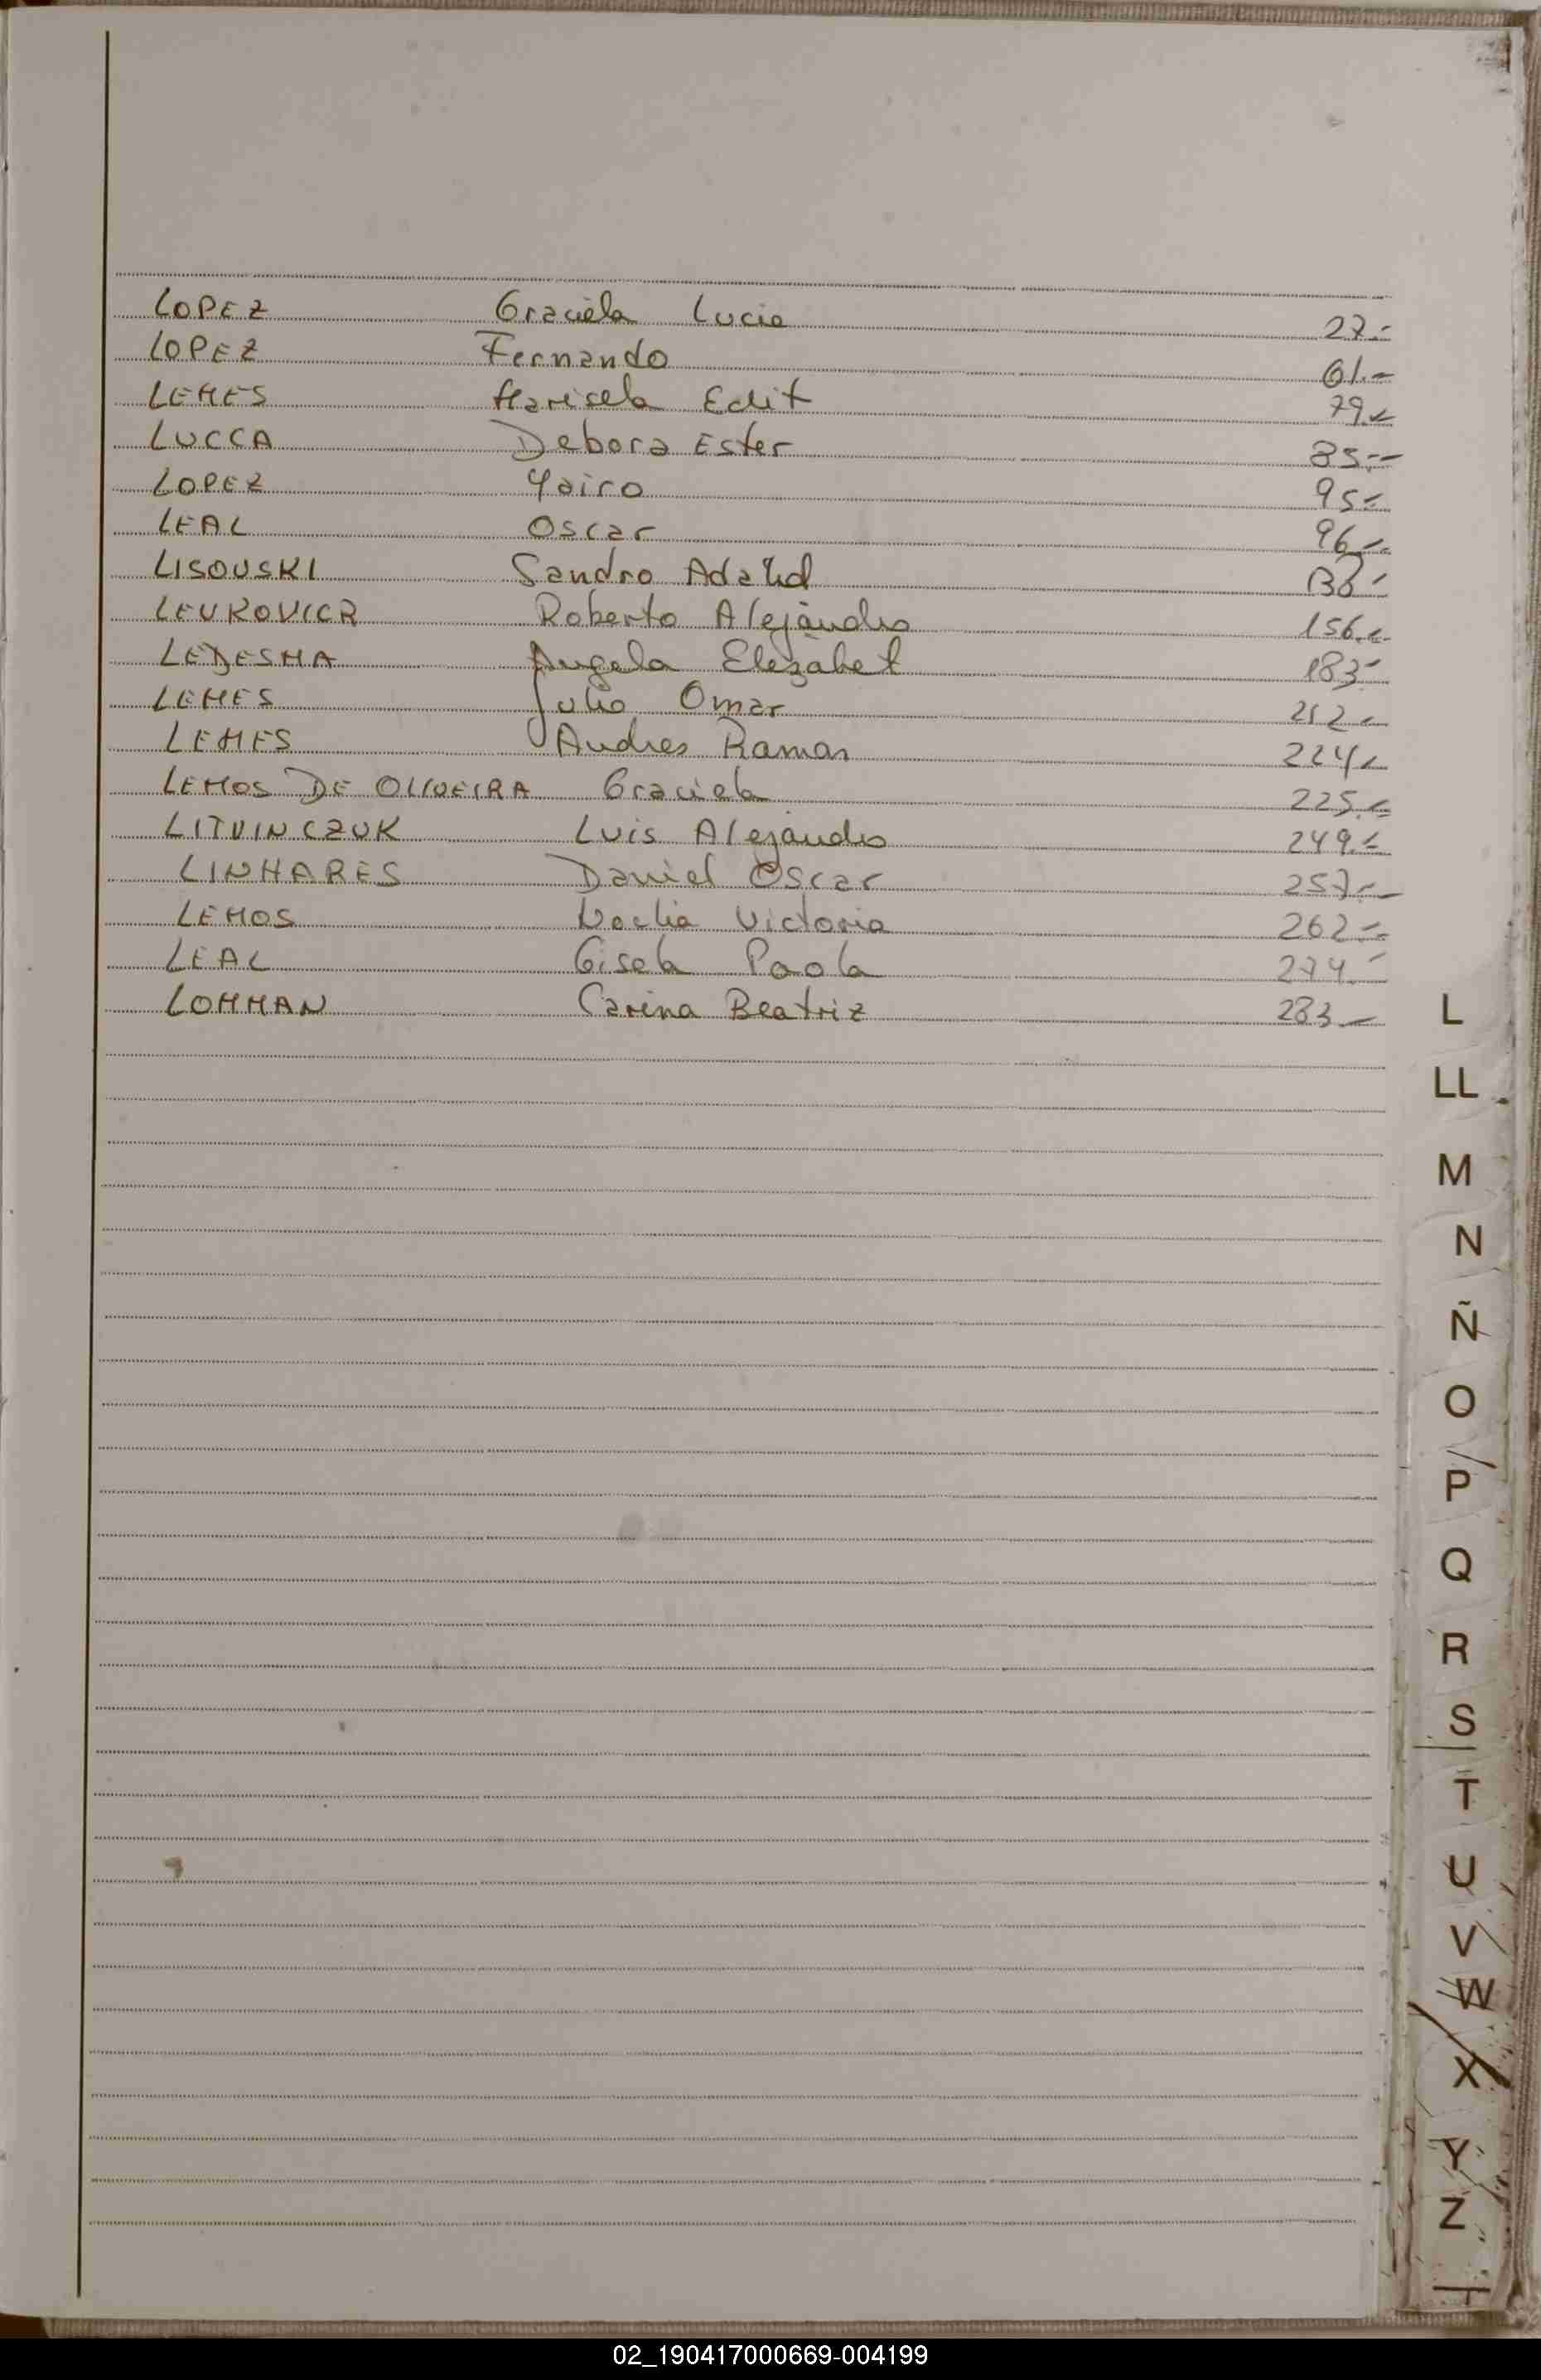 LOPEZ Graciela Lucia 27.-
LOPEZ Fernando 61.-
LEMES Marisela Edit 79.-
LUCCA Debora Ester 85.-
LOPEZ Yairo 95.-
LEAL Oscar 96.-
LISOUSKI Sandro
LEVKOVICR Roberto Alejandro 156.-
LEDESMA Angela Elezabet 183.-
LEMES Julio Omar 212.-
LEMES Andres Ramon 224.-
LEMOS DE OLIVEIRA Graciela 225.-
LITVINCZUK Luis Alejandro 249.-
LINHARES Daniel Oscar 257.-
LEMOS Victoria 262.-
LEAL Gisela Paola 274.-
LOMMAN Carina Beatriz 283.-
L
LL
M
N
Ñ
O
P
Q
R
S
T
U
V
W
X
Y
Z
02_190417000669-004199